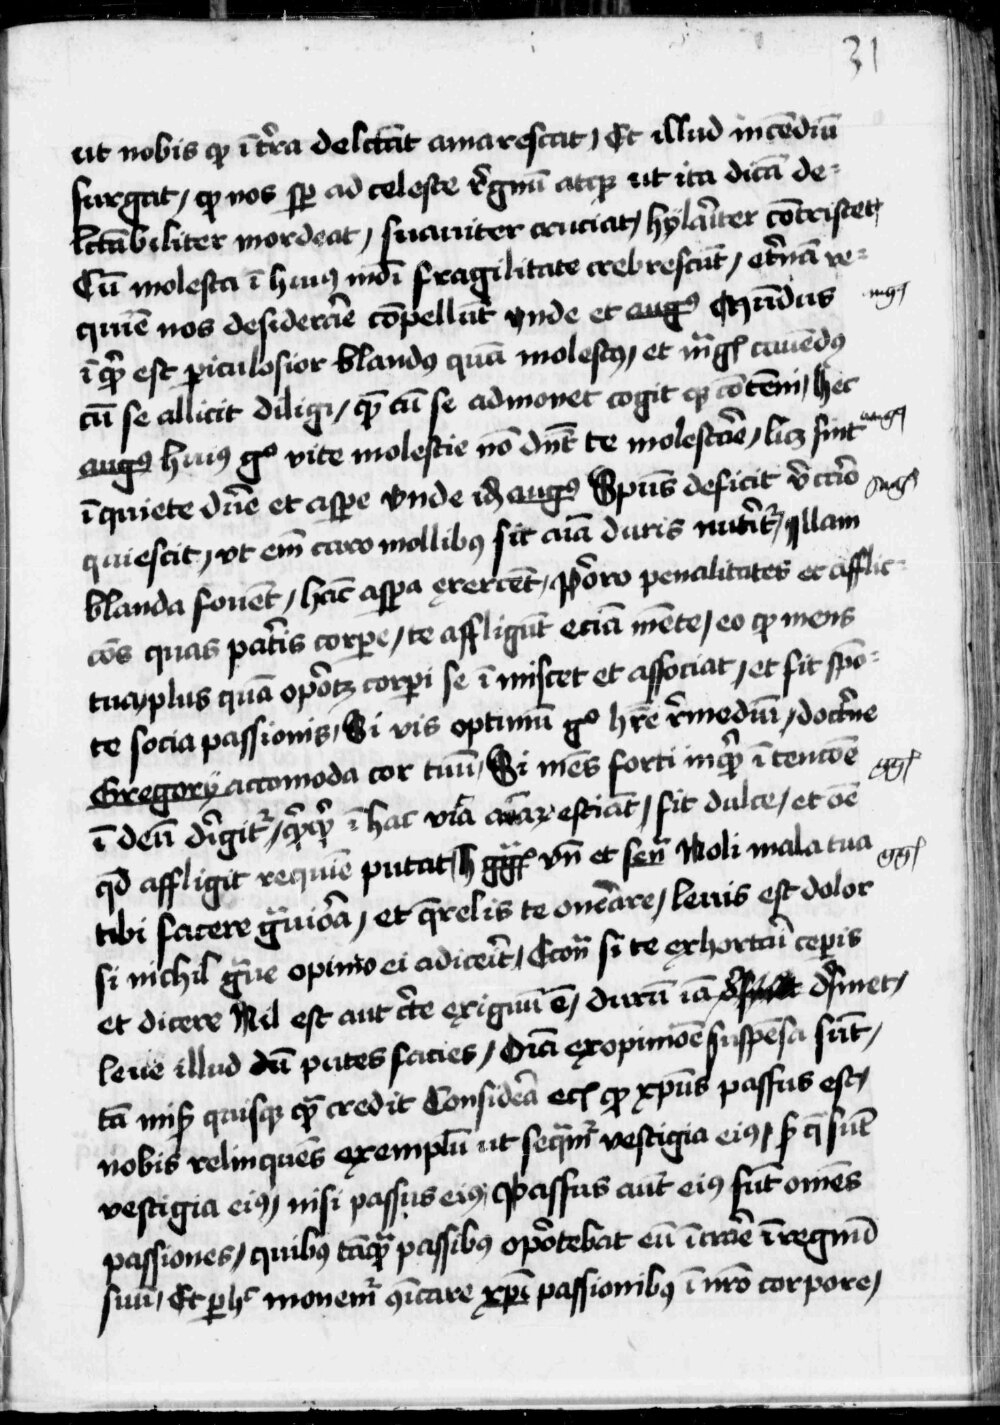 31
ut nobis qp ī t̄ra delctāt amarescat / Et illud incēdiū
surgat / qp nos sp̄ ad celeste rͥgnū atqz ut ita dicā de=
lctābiliter mordeat / suauiter cruciat / hylarͥter cōtristet /
Cū molesta ī huiꝰ mōi fragilitate crebrescūt / etͥnā re=
quiē nos desiderare cōpellūt vnde et augꝰ Mūdus
augꝰ
ī qͥ est ꝑiculosior blandꝰ quā molestꝰ / et magꝭ cauēdꝰ
cū se allicit diligi / qͣ cū se admonet cogit qz cōtēni / hec
augꝰ huiꝰ gͦ vite molestie nō dn̄t te molestare / licz sint
augꝰ
ī quiete dure et aspe vnde id̄ augꝰ Spūs deficit v̄ caro
augꝰ
quiescit / vt em̄ caro mollibꝰ sic aīa duris nutͥtͬ / illam
blanda fouēt / hāc aspa exercēt / Porro penalitates et afflic=
cōs quas patͥis corpe / te affligūt eciā mēte / eo qp mens
tua plus quā oportz corpi se īmiscet et associat / et fit spō=
te socia passionis / Si vis optimū gͦ hr̄e rͥmediū / doctͥne
Gregorij accomoda cor tuū / Si mēs forti inqͥ ītencōe
ggꝰ
ī deū dͥigitͬ / qͥcqͥd ī hac vita amarescat / fit dulce / et oē
qd̄ affligit requiē putat / h ggꝰ vn̄ et sen̄ Noli mala tua
ggꝰ
tibi facere gͣuiora / et qͣrelis te onerare / leuis est dolor
si nichil gͣue opinio ei adicerͥt / Econͣ si te exhortari ceperis
et dicere Nil est aut cͥte exiguū ē / durū iā desinet /
leue illud dū putes facies / Oīa ex opinioē suspēsa sūt /
tā mis̄ quisqz qͣ credit Considera eci qp xp̄us passus est /
nobis relinquēs exemplū ut seqͣmͬ vestigia eiꝰ / sꝫ q̄ sūt
vestigia eiꝰ / nisi passus eiꝰ Passus aūt eiꝰ sūt omēs
passiones / quibꝰ tāqͣ passibꝰ oportebat eū ītrare ī regnū
suū / Et ꝑ hͨ monemͬ cōicare xp̄i passionibꝰ ī nr̄o corpore /